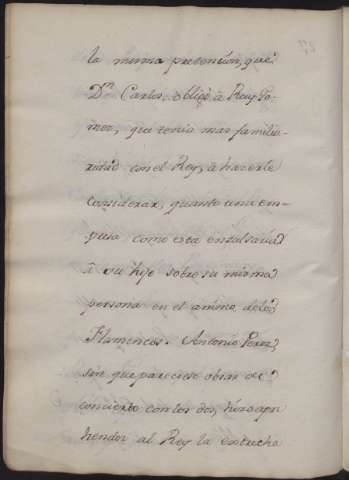 la misma pretencion, que
Dn. Carlos, obligó à Ruy Go-
mez, que tenia mas familia-
ridad con el Rey, à hacerle
considerar, quanto una em-
presa como esta ensalsaria
à su hijo sobre su misma
persona en el animo delos
Flamencos. Antonio Perez,
sin que pareciese obrar de
concierto con los dos, hizo apre
hender al Rey la estrecha